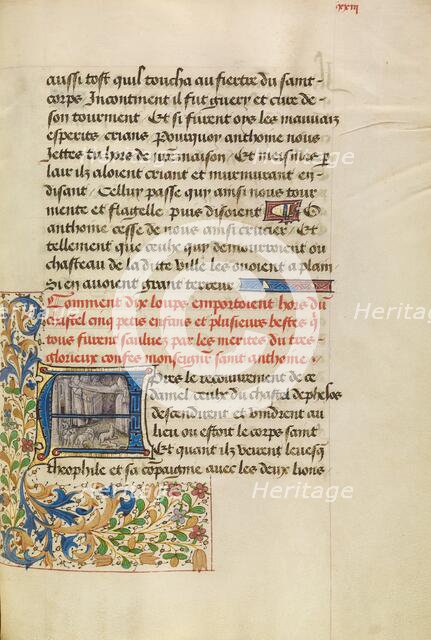 xxiii
aussi tost quil toucha au fiertre du saint
corps Incontinent il fut guery et cure de
son tourment Et si furent oys les mauvaiz
esperits crians Pourquoy anthoine nous
Jettes tu hors de nre maison / Et meismes p
lair ilz aloient criant et murmurant en
disant / Celluy passe quy ainsi nous tour
mente et flagelle puis disoient O
anthoine cesse de nous ainsi crucier / Et
tellement que ceulx quy demouroient ou
chasteau de la dite ville les ouoient a plain
Si en avoient grant terreur
Comment dix loups emportoient hors du
chastel cinq petis enfans et plusieurs bestes q
tous furent sauluez par les merites du tres
glorieux confes monseignr saint anthoine
Apres le recouvrement de ce
daniel ceulx du chastel de phelos
descendirent et vindrent au
lieu ou estoit le corps saint
Et quant ilz veirent levesq
theophile et sa compaignie avec les deux lions
Heritage
Heritage
Heritage
Heritage
Heritage
Heritage